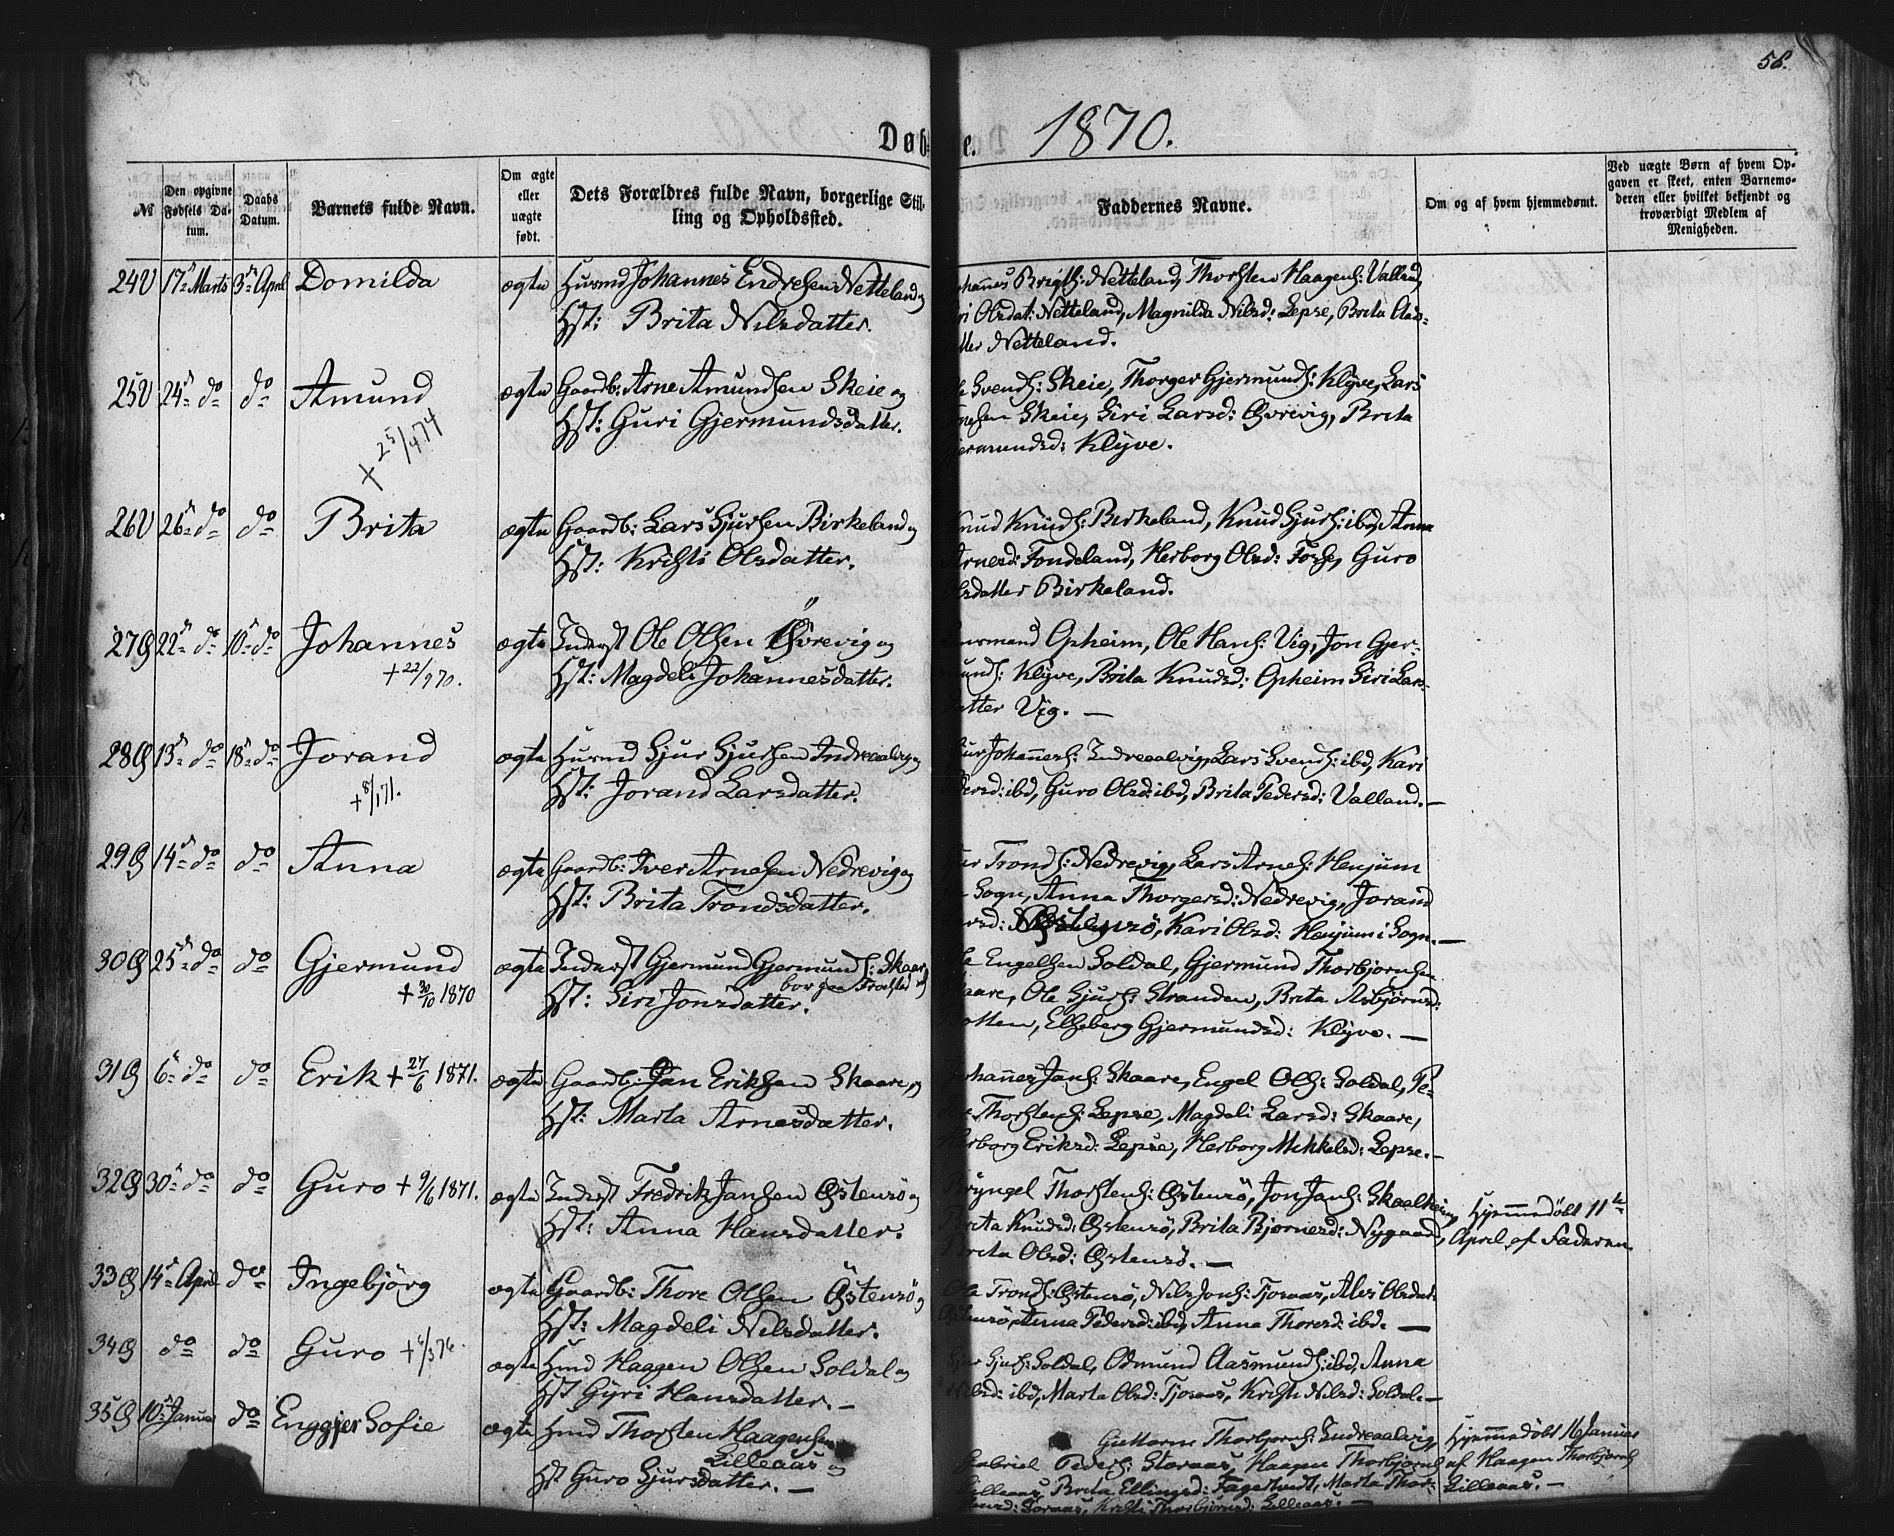 58.
Døb e. 1870.
№
Den opgivne Fødsels Datum.
Daabs Datum.
Barnets fulde Navn.
Om ægte eller uægte født.
Dets Forældres fulde Navn, borgerlige Stilling og Opholdssted.
Faddernes Navne.
Om og af hvem hjemmedømt.
Ved uægte Børn af hvem Opgaven er skeet, enten Barnemoderen eller hvilket bekjendt og troværdigt Medlem af Menigheden.
24 U 17de Marts 3de April Domilda ægte Husmd Johannes Endresen Netteland og
Hst: Brita Nilsdatter.
Brigts: Netteland, Thorsten Haagens: Valland,
Olsdat: Netteland, Magnilda Nilsd: Lepse, Brita
Netteland.
25 U 24de do do Amund ægte Gaardb: Arne Amundsen Skeie og
+ 25/4 74
Hst: Guri Gjermundsdatter.
Svends: Skeie, Thorger Gjermunds: Klyve, Lars
Skeie, Siri Larsd: Øvrevig, Brita
Klyve.
26 U 26de do do Brita ægte Gaardb: Lars Sjursen Birkeland og
Hst: Kristi Olsdatter.
Knud Knuds: Birkeland, Knud Sjurs: ibd, Anna
Arnesd: Tondeland, Herborg Olsd: Guro
Olsdatter Birkeland.
27 Q 22de do 10de do Johannes ægte Inderst Ole Olsen Øvrevig og
+ 22/9 70.
Hst: Magdeli Johannesdatter.
Opheim, Ole Hans: Vig, Jon Gjer-
munds: Klyve, Brita Knudsd: Opheim Siri Lars-
datter Vig. —
28 Q 13de do 18de do Jorand ægte Husmd Sjur Sjursen Indreaalvig og
+ 8/1 71.
Hst: Jorand Larsdatter.
Johannes: Indreaalvig, Lars Svends: ibd, Kari
Pedersd: ibd, Guro Olsd: ibd, Brita Pedersd: Valland. —
29 Q 14de do do Anna ægte Gaardb: Iver Arnesen Nedrevig og
Hst: Brita Trondsdatter.
Tronds: Nedrevig, Lars Arnes: Henjum
Sogn, Anna Thorgersd: Nedrevig, Jorand
Østensö, Kari Olsd: Henjum i Sogn. —
30 Q 25de do do Gjermund ægte Inderst Gjermund Gjermunds: Skaar
+ 30/10 1870
bor paa
Hst: Siri Jonsdatter.
Engelsen Soldal, Gjermund Thorbjornsen
Skaare, Ole Sjurs: Stranden, Brita Asbjørnsd:
Elseberg Gjermundsd: Klyve. —
31 Q 6te do do Erik + 27/6 1871. ægte Gaardb: Jan Eriksen Skaare, og
Hst: Marta Arnesdatter.
Johannes Jans: Skaare, Engel Ols: Soldal, Pe-
Thorstens: Lepse, Magdeli Larsd: Skaare,
Herborg Eriksd: Lepse, Herborg Mikkelsd: Lepse. —
32 Q 30te do do Guro + 9/6 1871. ægte Inderst Fredrik Jansen Østensö og
Hst: Anna Hansdatter.
Bryngel Thorstens: Østensö, Jon Jans: Skaalheim,
Brita Knudsd: Østensö, Brita Bjørnesd: Nygaard,
Brita Olsd: Østensö. —
Hjemmedöbt 11te
April af Faderen.
33 Q 14de April do Ingebjörg ægte Gaardb: Thore Olsen Östensö og
Hst: Magdeli Nilsdatter.
Ole Tronds: Østensö, Nils Jons: Tjoraas, Ales Olsdat:
Østensö, Anna Pedersd: ibd, Anna Thoresd: ibd. —
34 Q do do Guro ægte Hmd Haagen Olsen Soldal og
Hst Gyri Hansdatter. —
Sjurs: Soldal, Odmund Aasmunds: ibd, Anna
Nilsd: ibd, Marta Olsd: Tjoraas, Kristi Nilsd: Soldal. —
35 Q 10de Januar do Enggjer Sofie ægte Hmd Thorsten Haagensen
Lilleaas og
Hst Guro Sjursdatter. —
Guttorm Thorbjorns: Indreaalvig,
Gabriel Peders: Storaas, Haagen Thorbjorns
Lilleaas, Brita Ellingsd: Fagertvedt, Marta Thor-
Kristi Thorbjørnsd: Lilleaas. —
Hjemmedöbt 16 Januar
af Haagen Thorbjorns
Lilleaas. —